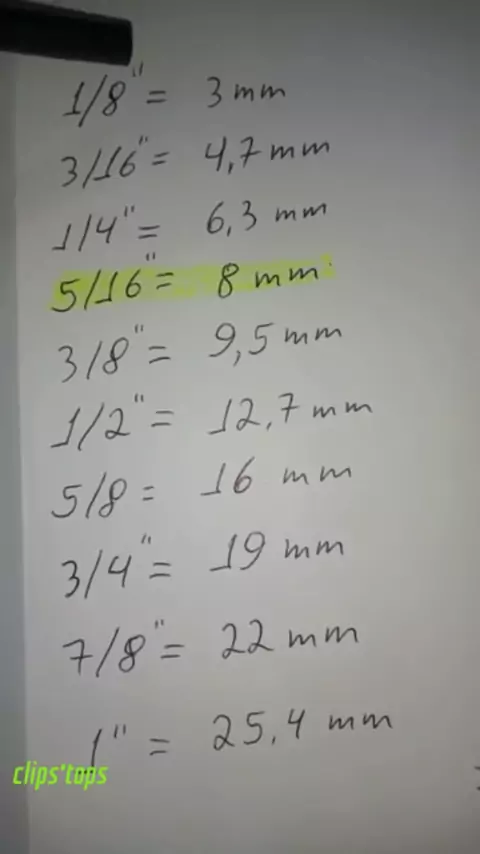 1/8" = 3 mm
3/16" = 4,7 mm
1/4" = 6,3 mm
5/16" = 8 mm
3/8" = 9,5 mm
1/2" = 12,7 mm
5/8 = 16 mm
3/4" = 19 mm
7/8" = 22 mm
1" = 25,4 mm
clips'tops